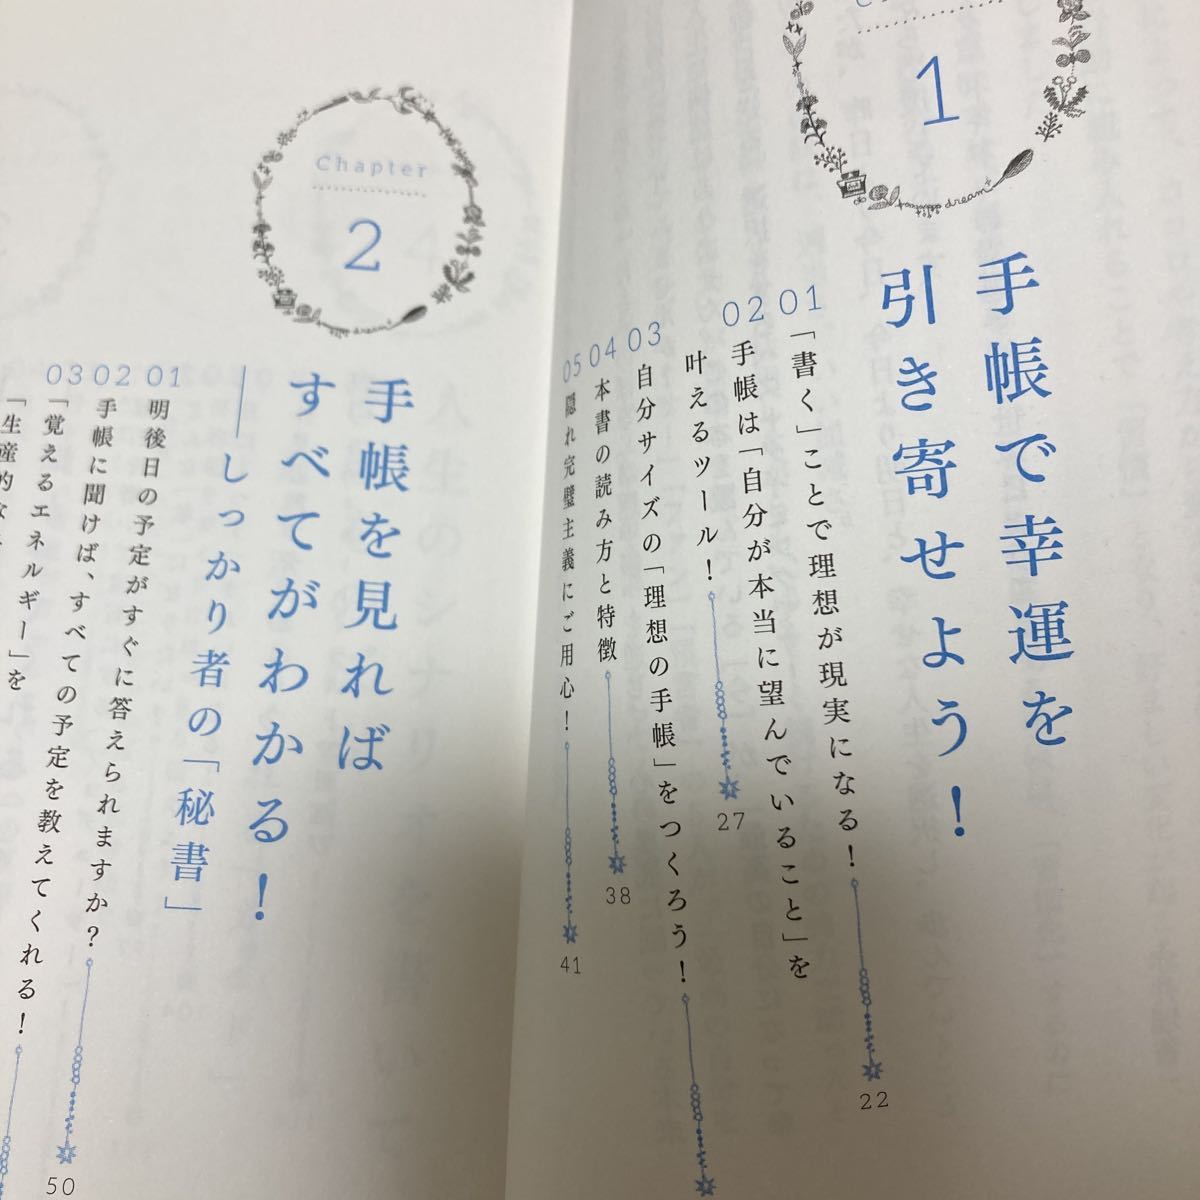 1
手帳で幸運を
引き寄せよう！
01
「書く」ことで理想が現実になる！
22
02
手帳は「自分が本当に望んでいること」を
叶えるツール！
27
03
自分サイズの「理想の手帳」をつくろう！
04
本書の読み方と特徴
38
05
隠れ完璧主義にご用心！
41
dream
Chapter
2
手帳を見れば
すべてがわかる！
——しっかり者の「秘書」
01
明後日の予定がすぐに答えられますか？
50
02
手帳に聞けば、すべての予定を教えてくれる！
03
「覚えるエネルギー」を
「生産的な
dream